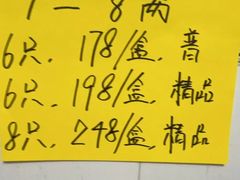 7一8两
6只.178/盒.普
6只.198/盒.精品
8只.248/盒.精品